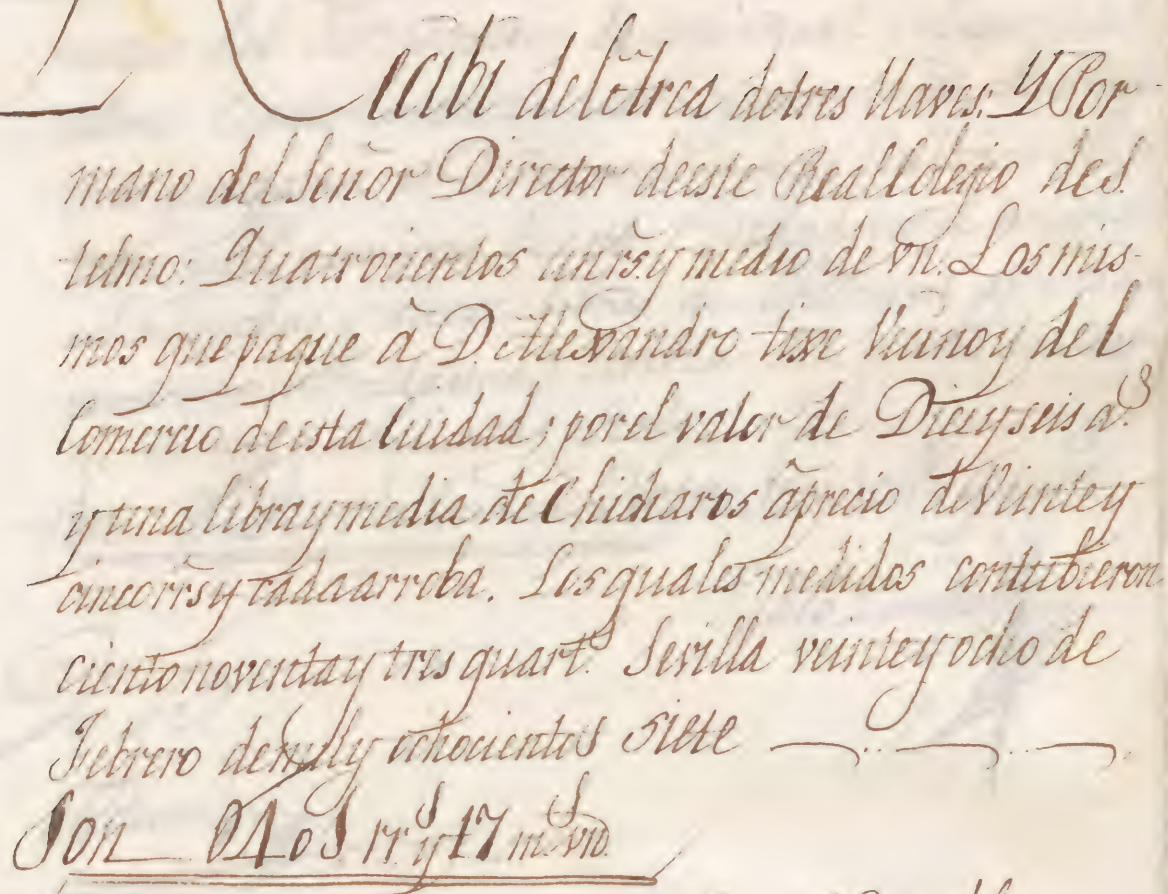 Recibi del Arca de tres llaves: Y Por
mano del Señor Director de este Real Colegio de S.
telmo: Quatrocientos un rs. y medio de vn. Los mis-
mos que pague â D. Alexandro tixe Vecino y del
Comercio de esta Ciudad; por el valor de Diez y seis a.s
y una libra y media de Chicharos â precio de Veinte y
cinco rrs y cada arroba. Los quales medidos contubieron
ciento noventa y tres quart.s Sevilla veinte y ocho de
Febrero de mil y ochocientos siete
Son 0401 rr.s y 17 m.s vn.